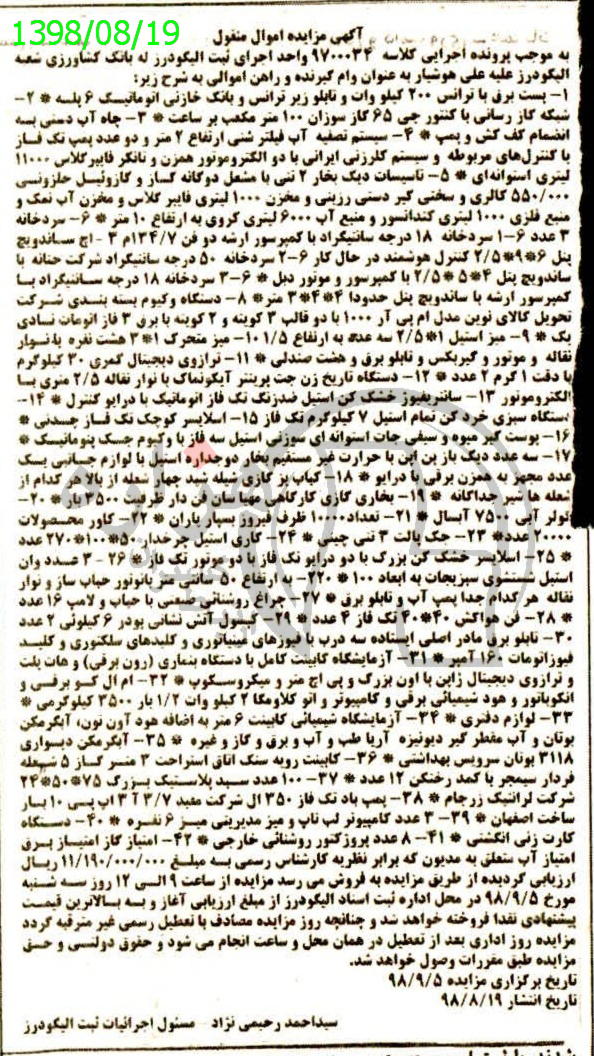 1398/08/19
آگهی مزایده اموال منقول
به موجب پرونده اجرایی کلاسه ۹۷۰۰۰۳۴ واحد اجرای ثبت الیگودرز له بانک کشاورزی شعبه
الیگودرز علیه علی هوشیار به عنوان وام گیرنده و راهن اموالی به شرح زیر:
۱- پست برق با ترانس ۲۰۰ کیلو وات و تابلو زیر ترانس و بانک خازنی اتوماتیک ۶ پله * ۲-
شبکه گاز رسانی با کنتور جی ۶۵ گاز سوزان ۱۰۰ متر مکعب بر ساعت * ۳- چاه آب دستی به
انضمام کف کش و پمپ * ۴- سیستم تصفیه آب فیلتر شنی ارتفاع ۲ متر و دو عدد پمپ تک فاز
با کنترل‌های مربوطه و سیستم کلرزنی ایرانی با دو الکتروموتور همزن و تانکر فایبرگلاس ۱۱۰۰۰
لیتری استوانه‌ای * ۵- تاسیسات دیک بخار ۲ تنی با مشعل دوگانه گساز و گازوئیل حلزونسی
۵۵۰/۰۰۰ کالری و سختی گیر دستی رزینی و مخزن ۱۰۰۰ لیتری فایبر گلاس و مخزن آب نمک و
منبع فلزی ۱۰۰۰ لیتری کندانسور و منبع آب ۶۰۰۰ لیتری کروی به ارتفاع ۱۰ متر * ۶- سردخانه
۳ عدد ۶-۱ سردخانه ۱۸ درجه سانتیگراد با کمپرسور ارشه دو فن ۱۳۴/۷م ۳ - اچ ساندویچ
پنل ۶*۹*۲/۵ کنترل هوشمند در حال کار ۶-۲ سردخانه ۵۰ درجه سانتیگراد شرکت حنانه با
ساندویچ پنل ۴*۵ *۲/۵ با کمپرسور و موتور دبل * ۶-۳ سردخانه ۱۸ درجه سانتیگراد بـا
کمپرسور ارشه با ساندویچ پنل حدودا ۴*۴*۳ متر * ۸- دستگاه وکیوم بسته بندی شرکت
تحویل کالای نوین مدل ام پی آر ۱۰۰۰ با دو قالب ۳ کوپنه و ۲ کوپنه با برق ۳ فاز اتومات نادی
پک * ۹- میز استیل ۱*۲/۵ سه عدد به ارتفاع ۱/۵ ۱۰- میز متحرک ۱*۳ هشت نفره با نوار
نقاله و موتور و گیربکس و تابلو برق و هشت صندلی * ۱۱- ترازوی دیجیتال گمری ۳۰ کیلوگرم
با دقت ۱ گرم ۲ عدد * ۱۲- دستگاه تاریخ زن جت پرینتر آیکونماک با نوار نقاله ۲/۵ متری بـا
الکتروموتور ۱۳- سانتریفیوژ خشک کن استیل ضدزنگ تک فاز اتوماتیک با درایو کنترل * ۱۴-
دستگاه سبزی خرد کن تمام استیل ۷ کیلوگرم تک فاز ۱۵- اسلایسر کوچک تک فـاز چـدنی *
۱۶- پوست گیر میوه و سیفی جات استوانه ای سوزنی استیل سه فاز با وکیوم جـک پنوماتیـک *
۱۷- سه عدد دیک باز پن این با حرارت غیر مستقیم بخار دوجداره استیل با لوازم جـانبی یـک
عدد مجهز به همزن برقی با درایو * ۱۸- کباب پز گازی شیله شید چهار شعله از بالا هر کدام از
شعله ها شیر جداگانه * ۱۹- بخاری گازی کارگاهی مهیا سان فن دار ظرفیت ۳۵۰۰ بار * ۲۰-
کولر آبی ۷۵۰۰ آبسال * ۲۱- تعداد ۱۰۰۰۰ ظرف فیروز بسپار یاران * ۲۲- کاور محـصولات
۲۰۰۰۰ عدد * ۲۳- جک پالت ۳ تنی چینی * ۲۴- گاری استیل چرخدار ۵۰*۱۰۰*۲۷۰ عدد
* ۲۵- اسلایسر خشک کن بزرگ با دو درایو تک فاز با دو موتور تک فاز * ۲۶ - ۳ عـدد وان
استیل شستشوی سبزیجات به ابعاد ۱۰۰ * ۲۲۰- به ارتفاع ۵۰ سانتی متر باتوتور حباب ساز و نوار
نقاله هر کدام جدا پمپ آب و تابلو برق * ۲۷- چراغ روشنائی صنعتی با حباب و لامپ ۱۶ عدد
* ۲۸- فن هواکش ۴۰*۴۰ تک فاز ۴ عدد * ۲۹- کپسول آتش نشانی پودر ۶ کیلوئی ۲ عدد
۳۰- تابلو برق مادر اصلی ایستاده سه درب با فیوزهای مینیاتوری و کلیدهای سلکتوری و کلیـد
فیوزاتومات ۱۶۰ آمپر * ۳۱- آزمایشگاه کابینت کامل با دستگاه بنماری (رون برقی) و هات پلت
و ترازوی دیجیتال ژاپن با اون بزرگ و پی اچ متر و میکروسـکوپ * ۳۲- ام ال کـو برقـی و
انکوباتور و هود شیمیائی برقی و کامپیوتر و اتو کلاومگا ۲ کیلو وات ۱/۲ بار ۳۵۰۰ کیلوگرمی *
۳۳- لوازم دفتری * ۳۴- آزمایشگاه شیمیائی کابینت ۶ متر به اضافه هود آون تون، آبگرمکن
بوتان و آب مقطر گیر دیونیزه آریا طب و آب و برق و گاز و غیره * ۳۵- آبگرمکن دیـواری
۳۱۱۸ بوتان سرویس بهداشتی * ۳۶- کابینت رویه سنک اتاق استراحت ۳ متـر گـاز ۵ شـعله
فردار سیمجر با کمد رختکن ۱۲ عدد * ۳۷- ۱۰۰ عدد سـبد پلاسـتیک بـزرگ ۷۵*۵۰*۲۴
شرکت لرانتیک زرجام * ۳۸- پمپ باد تک فاز ۳۵۰ ال شرکت مفید ۳/۷ آ ۳ اب پـی ۱۰ بـار
ساخت اصفهان * ۳۹- ۳ عدد کامپیوتر لپ تاپ و میز مدیریتی میـز ۶ نفـره * ۴۰- دسـتگاه
کارت زنی انگشتی * ۴۱- ۸ عدد پروژکتور روشنائی خارجی * ۴۲- امتیاز گاز امتیـاز بـرق
امتیاز آب متعلق به مدیون که برابر نظریه کارشناس رسمی به مبلـغ ۱۱/۱۹۰/۰۰۰/۰۰۰ ریـال
ارزیابی گردیده از طریق مزایده به فروش می رسد مزایده از ساعت ۹ الـی ۱۲ روز سـه شـنبه
مورخ ۹۸/۹/۵ در محل اداره ثبت اسناد الیگودرز از مبلغ ارزیابی آغاز و بـه بـالاترین قیمـت
پیشنهادی نقدا فروخته خواهد شد و چنانچه روز مزایده مصادف با تعطیل رسمی غیر مترقبه گردد
مزایده روز اداری بعد از تعطیل در همان محل و ساعت انجام می شود و حقوق دولتـی و حـق
مزایده طبق مقررات وصول خواهد شد.
تاریخ برگزاری مزایده ۹۸/۹/۵
تاریخ انتشار ۹۸/۸/۱۹
سیداحمد رحیمی نژاد - مسئول اجرائیات ثبت الیگودرز